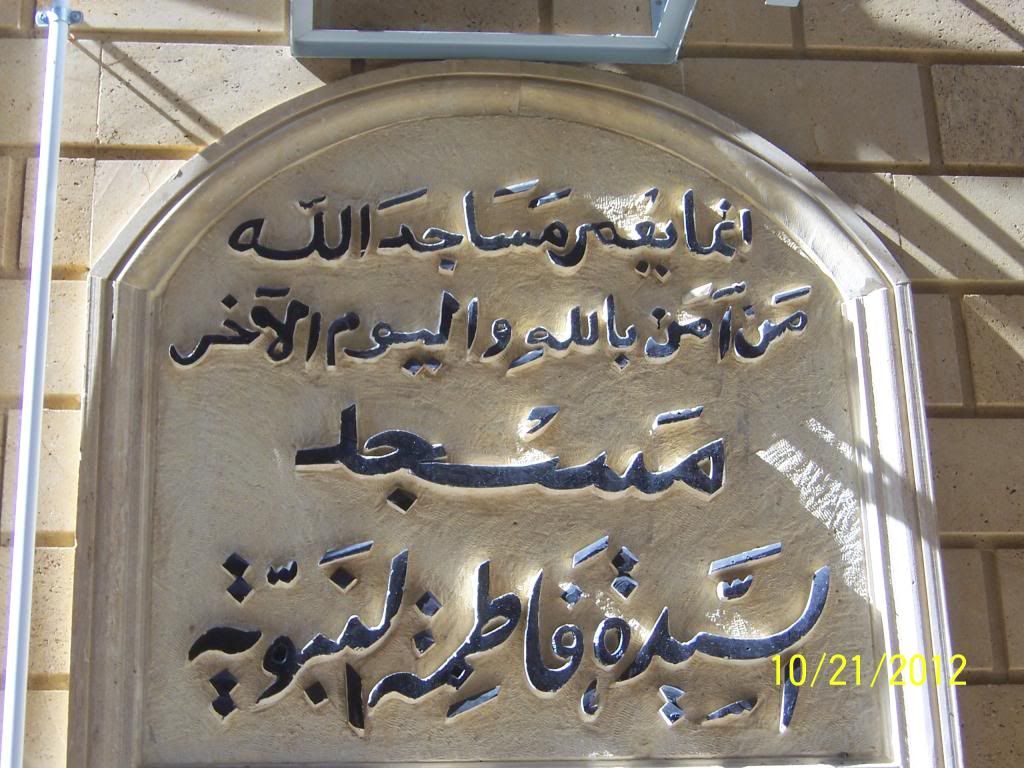 انما يعُمر مَسَاجدَ الله
مَن آمَن بالله واليوم الآخر
مَسْجد
السَّيدة فَاطمة النَبوَيّة
10/21/2012